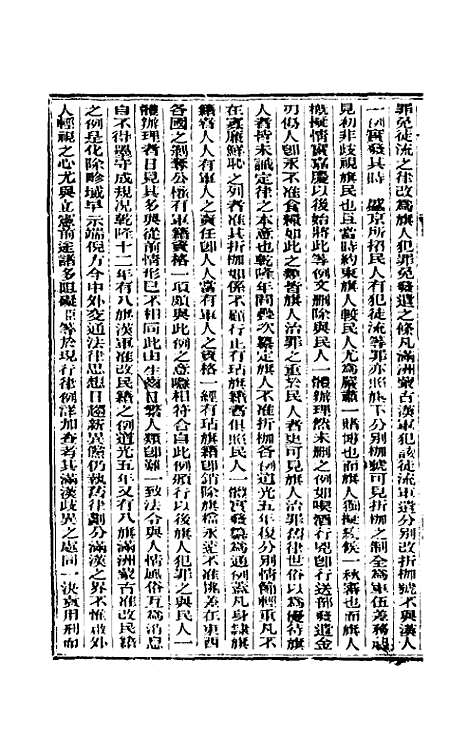 罪免徒流之律改爲旗人犯罪免發遣之條凡滿洲蒙古漢軍犯該徒流軍遣分別改折枷號不與漢人
一例實發其時 盛京所招民人有犯徒流等罪亦照旗下分別枷號可見折枷之制全爲軍伍差務起
見初非歧視旗民也且當時約束旗人較民人尤爲嚴肅一賭博也而旗人擬絞候一秋審也而旗人
概擬情實嘉慶以後始將此等例文刪除與民人一體辦理然未刪之例如喫酒行兇卽行送部發遣金
刃傷人卽永不准食糧如此之類皆旗人治罪之重於民人者更可見旗人治罪舊律世俗以爲優待旗
人者皆未識定律之本意也乾隆年間疊次纂定旗人不准折枷各例道光五年復分別情節輕重凡不
在寡廉鮮恥之列者准其折枷如係不顧行止有玷旗籍者俱照民人一體實發纂爲通例蓋凡身隸旗
籍者人人有軍人之責任卽人人當有軍人之資格一經有玷旗籍卽銷除旗檔永遠不准挑差在東西
各國之剝奪公權有軍籍資格一項頗與此例之意隱相符合自此例頒行以後旗人犯罪之與民人一
體辦理者日見其多與從前情形已不相同此由生齒日繁人類卽難一致法令與人情風俗互爲消息
自不得墨守成規况乾隆十二年有八旗漢軍准改民籍之例道光五年又有八旗滿洲蒙古准改民籍
之例是化除畛域早示端倪方今中外交通法律思想日趨新異儻仍執舊律劃分滿漢之界不惟啟外
人輕視之心尤與立憲前途諸多阻礙臣等於現行律例詳加查考其滿漢歧異之處同一決責用刑而